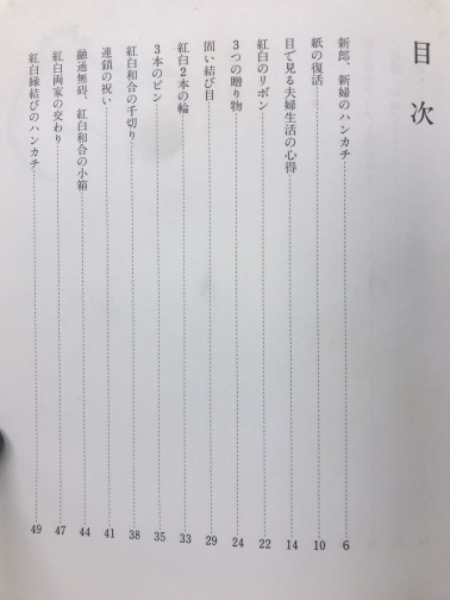 目次
新郎、新婦のハンカチ 6
紙の復活 10
目で見る夫婦生活の心得 14
紅白のリボン 22
3つの贈り物 24
固い結び目 29
紅白2本の輪 33
3本のピン 35
紅白和合の千切り 38
連鎖の祝い 41
融通無碍、紅白和合の小箱 44
紅白両家の交わり 47
紅白縁結びのハンカチ 49